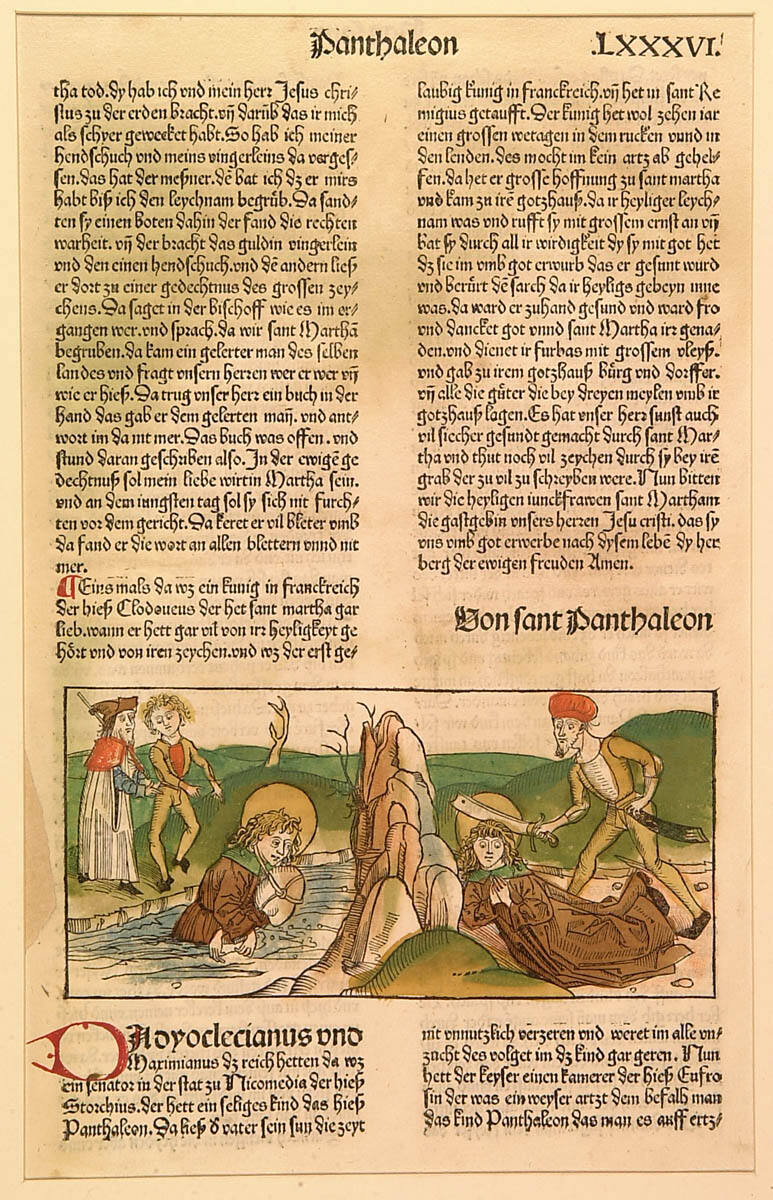 Panthaleon
.LXXXVI.
tha tod.dy hab ich vnd mein herr Jesus chri⸗
stus zu der erden bracht.vñ darüb das ir mich
als schyer gewecket habt.So hab ich meiner
hendschuch vnd meins vingerleins da verges⸗
sen.das hat der meßner.dē bat ich dz er mirs
habt biß ich den leychnam begrüb.Da sand⸗
ten sy einen boten dahin der fand die rechten
warheit.vñ der bracht das guldin vingerlein
vnd den einen hendschuch.vnd dē andern ließ
er dort zu einer gedechtnus des grossen zey⸗
chens.Da saget in der bischoff wie es im er⸗
gangen wer.vnd sprach.da wir sant Marthā
begruben.da kam ein gelerter man des selben
landes vnd fragt vnsern herren wer er wer vñ
wie er hieß.Da trug vnser herr ein buch in der
hand das gab er dem gelerten mañ.vnd ant⸗
wort im da mt mer.Das buch was offen.vnd
stund daran geschriben also.In der ewigē ge
dechtnuß sol mein liebe wirtin Martha sein.
vnd an dem iungsten tag sol sy sich nit furch⸗
ten vor dem gericht.Da keret er vil bleter vmb
da fand er die wort an allen blettern vnnd nit
mer.
¶ Eins mals da wz ein kunig in franckreich
der hieß Clodoueus der het sant martha gar
lieb.wann er hett gar vil von irr heyligkeyt ge
hört vnd von iren zeychen.vnd wz der erst ge⸗
laubig kunig in franckreich.vñ het in sant Re
migius getaufft.Der kunig het wol zehen iar
einen grossen wetagen in dem rucken vnnd in
den lenden.des mocht im kein artz ab gehel⸗
fen.da het er grosse hoffnung zu sant martha
vnd kam zu irē gotzhauß.da ir heyliger leych⸗
nam was vnd rufft sy mit grossem ernst an vñ
bat sy durch all ir wirdigkeit dy sy mit got het
dz sie im vmb got erwurb das er gesunt wurd
vnd berürt dē sarch da ir heyligs gebeyn inne
was.da ward er zuhand gesund vnd ward fro
vnd dancket got vnnd sant Martha irr gena⸗
den.vnd dienet ir furbas mit grossem vleyß.
vnd gab zu irem gotzhauß bürg vnd dorffer.
vñ alle die güter die bey dreyen meylen vmb ir
gotzhauß lagen.Es hat vnser herr sunst auch
vil siecher gesundt gemacht durch sant Mar⸗
tha vnd thut noch vil zeychen durch sy bey irē
grab der zu vil zu schreyben were.Nun bitten
wir die heyligen iunckfrawen sant Martham
die gastgebin vnsers herren Jesu cristi.das sy
vns vmb got erwerbe nach dysem lebē dy her
berg der ewigen freuden Amen.
Von sant Panthaleon
DA dyoclecianus vnd
Maximianus dz reich hetten da wz
ein senator in der stat zu Nicomedia der hieß
Storchius.der hett ein seliges kind das hieß
Panthaleon.Da ließ d vater sein sun die zeyt
nit vnnutzlich verzeren vnd weret im alle vn⸗
zucht des volget im dz kind gar geren. Nun
hett der keyser einen kamerer der hieß Eufro
sin der was ein weyser artzt dem befalh man
das kind Panthaleon das man es auff ertz⸗